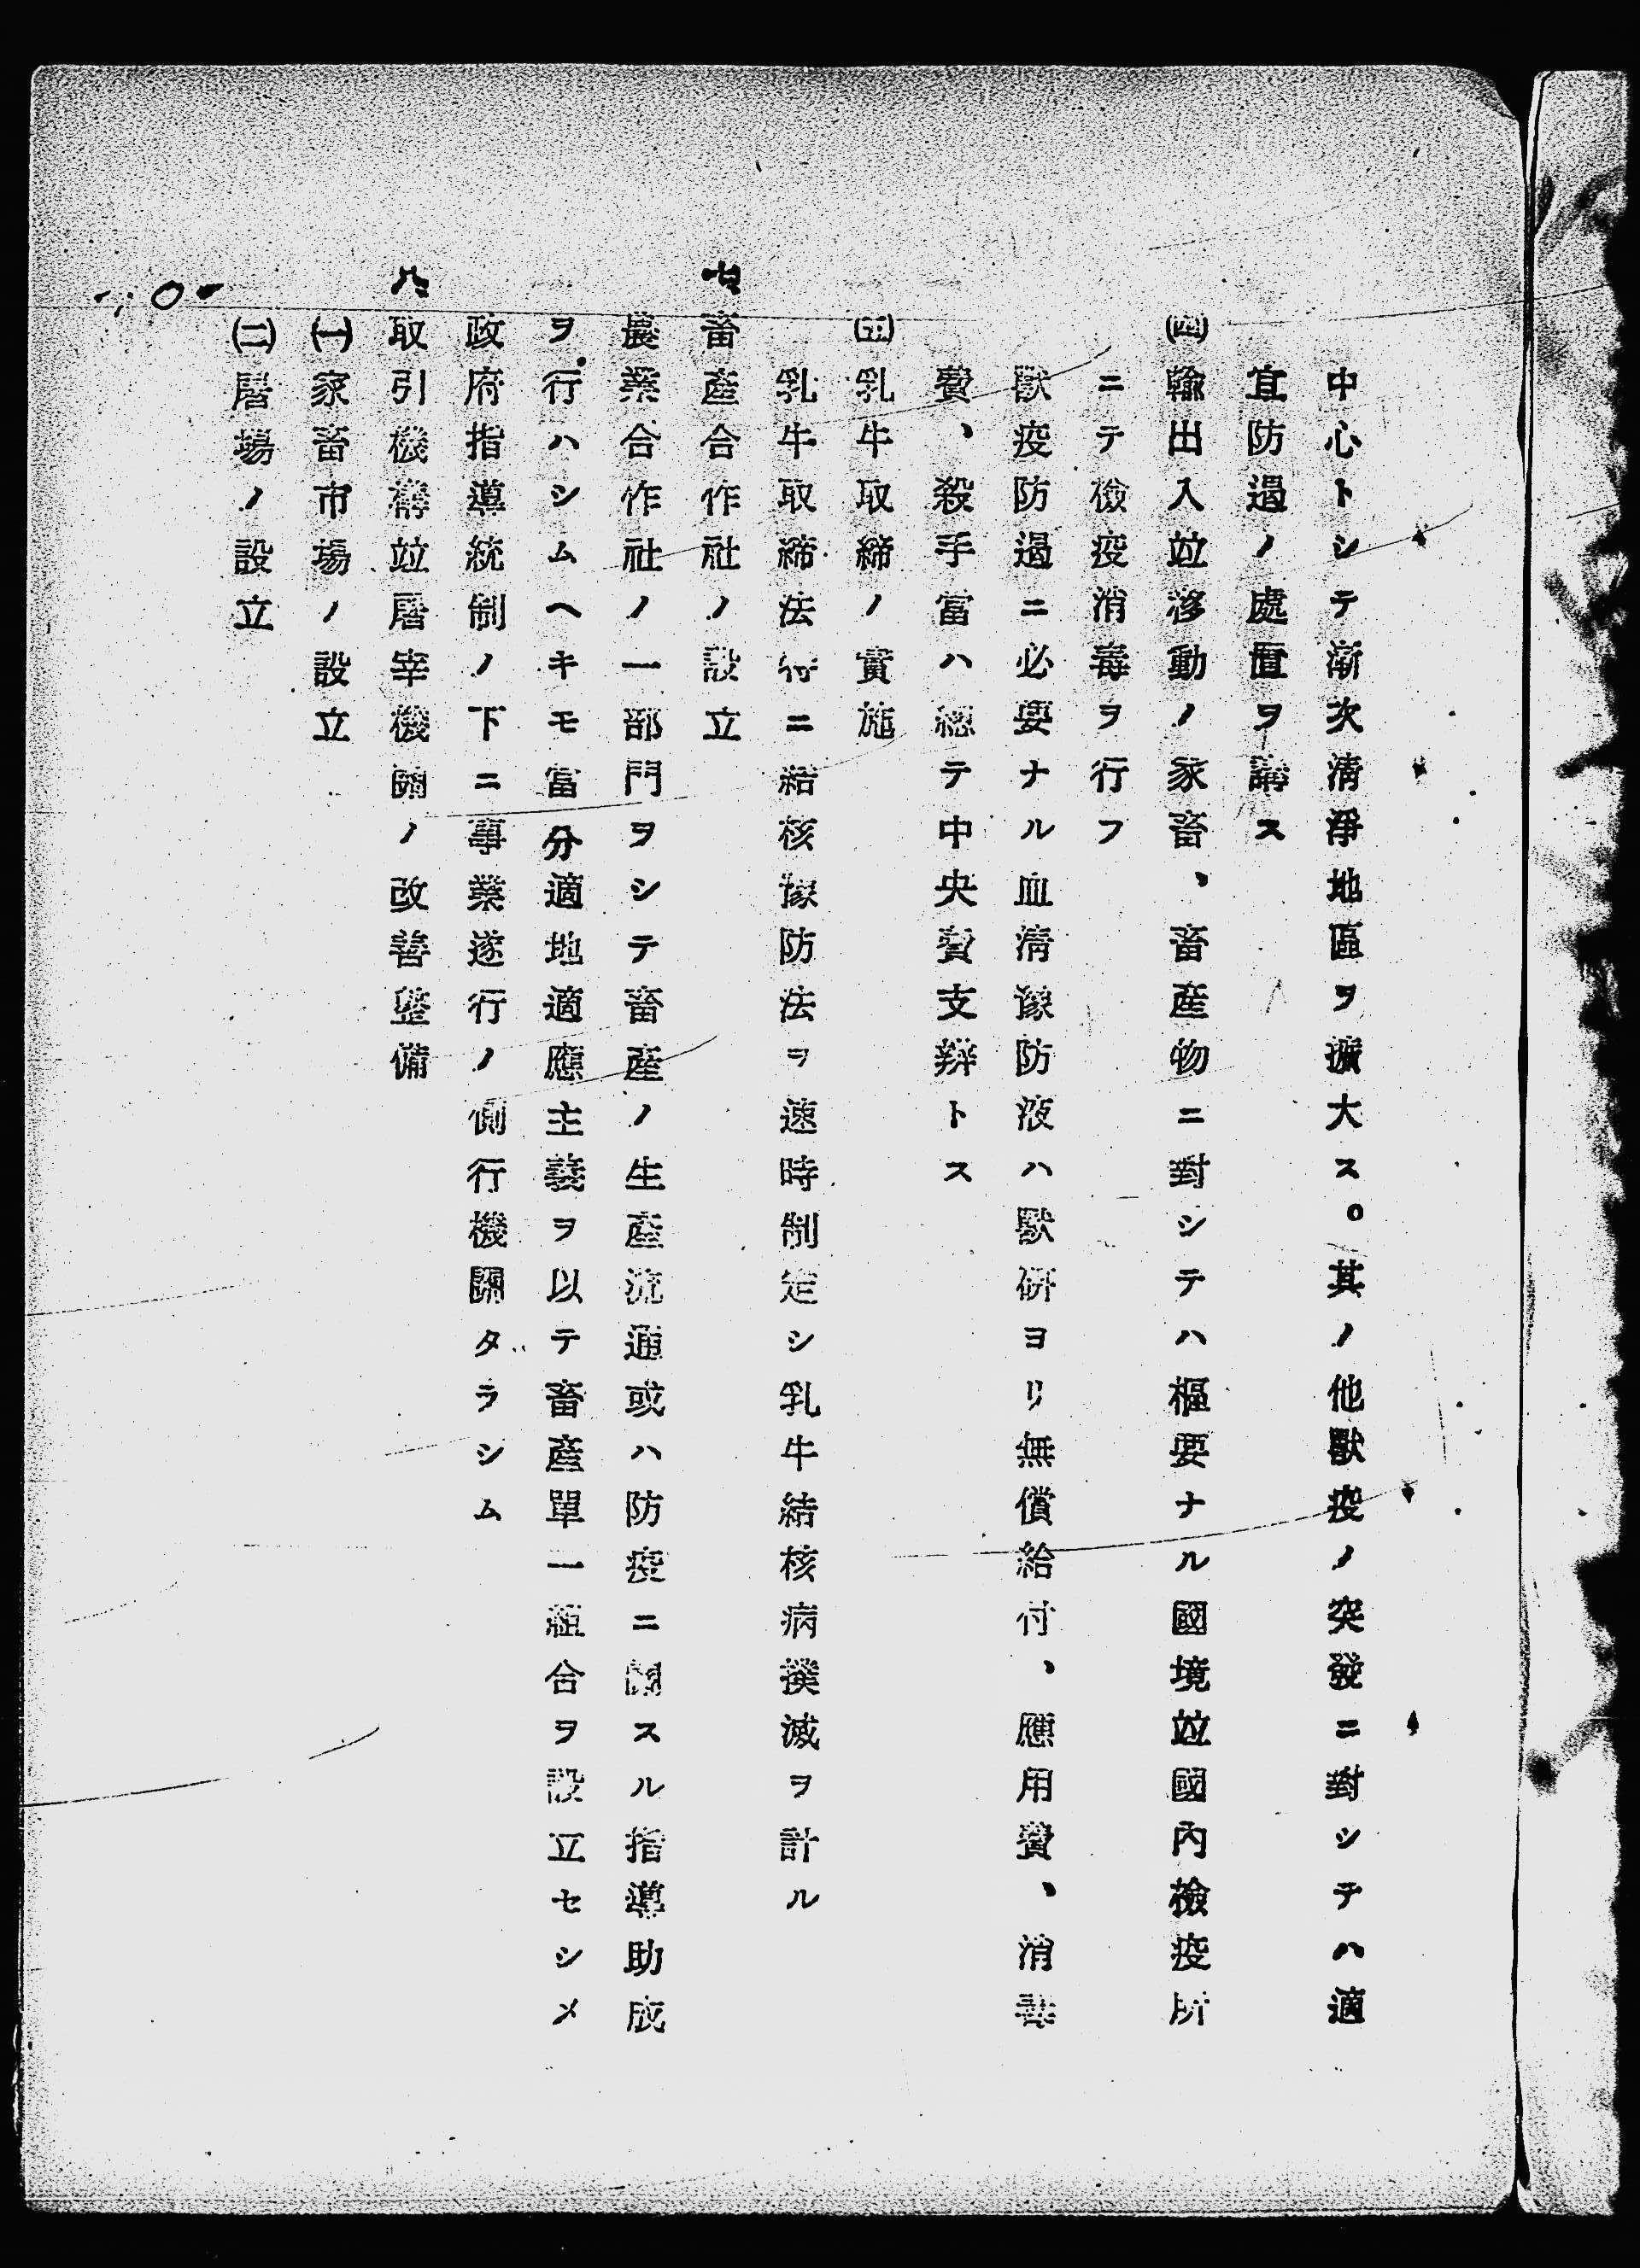 中心トシテ漸次淸淨地區ヲ擴大ス。其ノ他獸疫ノ突發ニ對シテハ適
宜防遏ノ處置ヲ講ス
㈣輸出入竝移動ノ家畜、畜產物ニ對シテハ樞要ナル國境竝國內檢疫所
ニテ檢疫消毒ヲ行フ
獸疫防遏ニ必要ナル血淸豫防液ハ獸硏ヨリ無償給付、應用費、消毒
費、殺手當ハ總テ中央費支辨トス
㈤乳牛取締ノ實施
乳牛取締法竝ニ結核豫防法ヲ速時制定シ乳牛結核病撲滅ヲ計ル
七畜產合作社ノ設立
農業合作社ノ一部門ヲシテ畜產ノ生產流通或ハ防疫ニ關スル指導助成
ヲ行ハシムヘキモ當分適地適應主義ヲ以テ畜產單一組合ヲ設立セシメ
政府指導統制ノ下ニ事業遂行ノ側行機關タラシム
八取引機構竝屠宰機關ノ改善整備
㈠家畜市場ノ設立
㈡屠場ノ設立